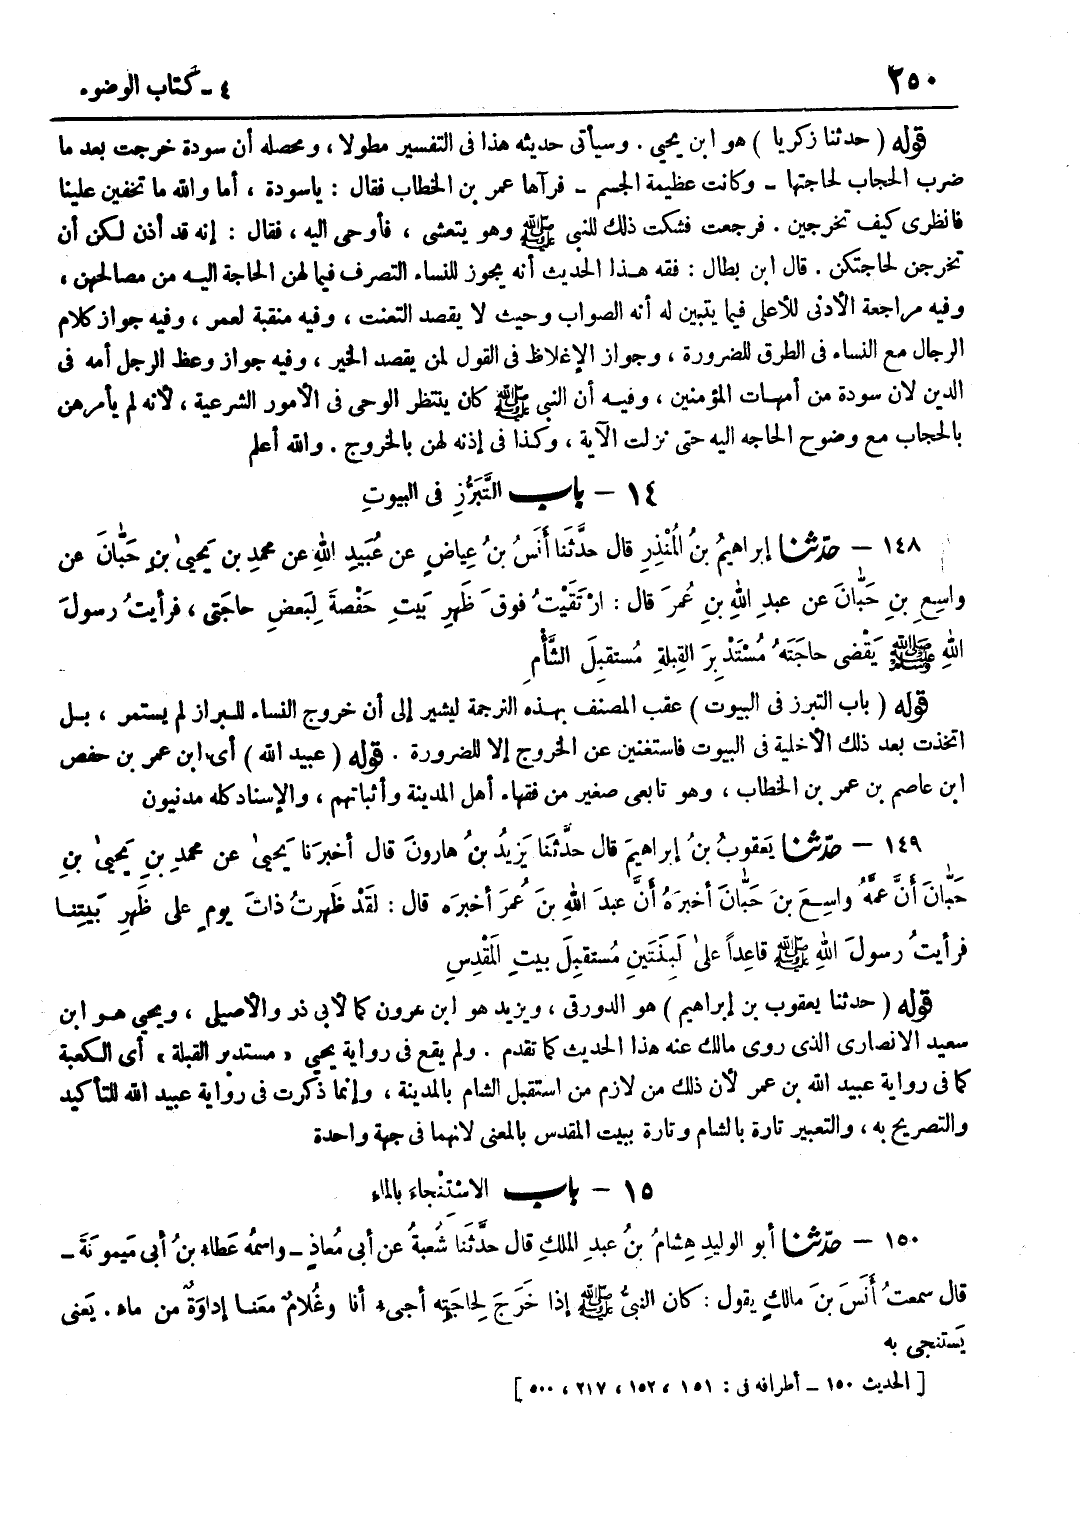 ٢٥٠
٤ - كتاب الوضوء
قوله ( حدثنا زكريا ) هو ابن يحيى . وسيأتى حديثه هذا فى التفسير مطولا ، ومحصله أن سودة خرجت بعد ما
ضرب الحجاب لحاجتها - وكانت عظيمة الجسم - فرآها عمر بن الخطاب فقال : ياسودة ، أما والله ما تخفين علينا
فانظرى كيف تخرجين . فرجعت فشكت ذلك للنبى ﷺ وهو يتعشى ، فأوحى اليه ، فقال : إنه قد أذن لكن أن
تخرجن لحاجتكن . قال ابن بطال : فقه هذا الحديث أنه يجوز للنساء التصرف فيما لهن الحاجة اليه من مصالحهن ،
وفيه مراجعة الأدنى للأعلى فيما يتبين له أنه الصواب وحيث لا يقصد التعنت ، وفيه منقبة لعمر ، وفيه جواز كلام
الرجال مع النساء فى الطرق للضرورة ، وجواز الإغلاظ فى القول لمن يقصد الخير ، وفيه جواز وعظ الرجل أمه فى
الدين لان سودة من أمهات المؤمنين ، وفيه أن النبى ﷺ كان ينتظر الوحى فى الأمور الشرعية ، لأنه لم يأمرهن
بالحجاب مع وضوح الحاجه اليه حتى نزلت الآية ، وكذا فى إذنه لهن بالخروج . والله أعلم
١٤ - باب التَّبَرُّزِ فى البيوتِ
١٤٨ - حدّثنا إبراهيمُ بنُ المُنْذِرِ قال حدَّثَنا أَنَسُ بنُ عِياضٍ عن عُبَيدِ اللهِ عن محمدِ بن يَحْيىٰ بنِ حَبَّانَ عن
واسِعِ بنِ حَبَّانَ عن عبدِ اللهِ بنِ عُمرَ قال : ارْتَقَيْتُ فوقَ ظَهرِ بَيتِ حَفْصةَ لِبَعضِ حاجَتى ، فرأيتُ رسولَ
اللهِ ﷺ يَقْضى حاجَتَهُ مُسْتَدْبِرَ القِبلةِ مُستقبِلَ الشَّأْمِ
قوله ( باب التبرز فى البيوت ) عقب المصنف بهذه الترجمة ليشير إلى أن خروج النساء للبراز لم يستمر ، بل
اتخذت بعد ذلك الأخلية فى البيوت فاستغنين عن الخروج إلا للضرورة . قوله ( عبيد الله ) أى ابن عمر بن حفص
ابن عاصم بن عمر بن الخطاب ، وهو تابعى صغير من فقهاء أهل المدينة وأثباتهم ، والإسناد كله مدنيون
١٤٩ - حدّثنا يَعقوبُ بنُ إبراهيمَ قال حدَّثَنا يَزيدُ بنُ هارونَ قال أخبرَنا يَحيىٰ عن محمدِ بنِ يَحيىٰ بنِ
حَبَّانَ أنَّ عمَّهُ واسِعَ بنَ حَبَّانَ أخبرَهُ أنَّ عبدَ اللهِ بنَ عُمرَ أخبرَه قال : لقَدْ ظَهرتُ ذاتَ يومٍ على ظَهرِ بَيتِنا
فرأيتُ رسولَ اللهِ ﷺ قاعِداً علىٰ لَبِنَتَينِ مُستقبِلَ بيتِ المَقْدِسِ
قوله ( حدثنا يعقوب بن إبراهيم ) هو الدورقى ، ويزيد هو ابن هرون كما لأبى ذر والأصيلى ، ويحيى هو ابن
سعيد الانصارى الذى روى مالك عنه هذا الحديث كما تقدم . ولم يقع فى رواية يحيى « مستدبر القبلة » أى الكعبة
كما فى رواية عبيد الله بن عمر لأن ذلك من لازم من استقبل الشام بالمدينة ، وإنما ذكرت فى رواية عبيد الله للتأكيد
والتصريح به ، والتعبير تارة بالشام وتارة ببيت المقدس بالمعنى لانهما فى جهة واحدة
١٥ - باب الاسْتِنْجاءِ بالماءِ
١٥٠ - حدّثنا أبو الوليدِ هِشامُ بنُ عبدِ الملكِ قال حدَّثَنا شُعبةُ عن أبى مُعاذٍ - واسمهُ عَطاءُ بنُ أبى مَيمونَةَ -
قال سمعتُ أنَسَ بنَ مالكٍ يقول : كان النبىُّ ﷺ إذا خَرَجَ لِحاجَتِه أجىءُ أنا وغُلامٌ معَنا إداوَةٌ من ماء . يَعنى
يَستنجى به
[ الحديث ١٥٠ - أطرافه فى : ١٥١ ، ١٥٢ ، ٢١٧ ، ٥٠٠ ]